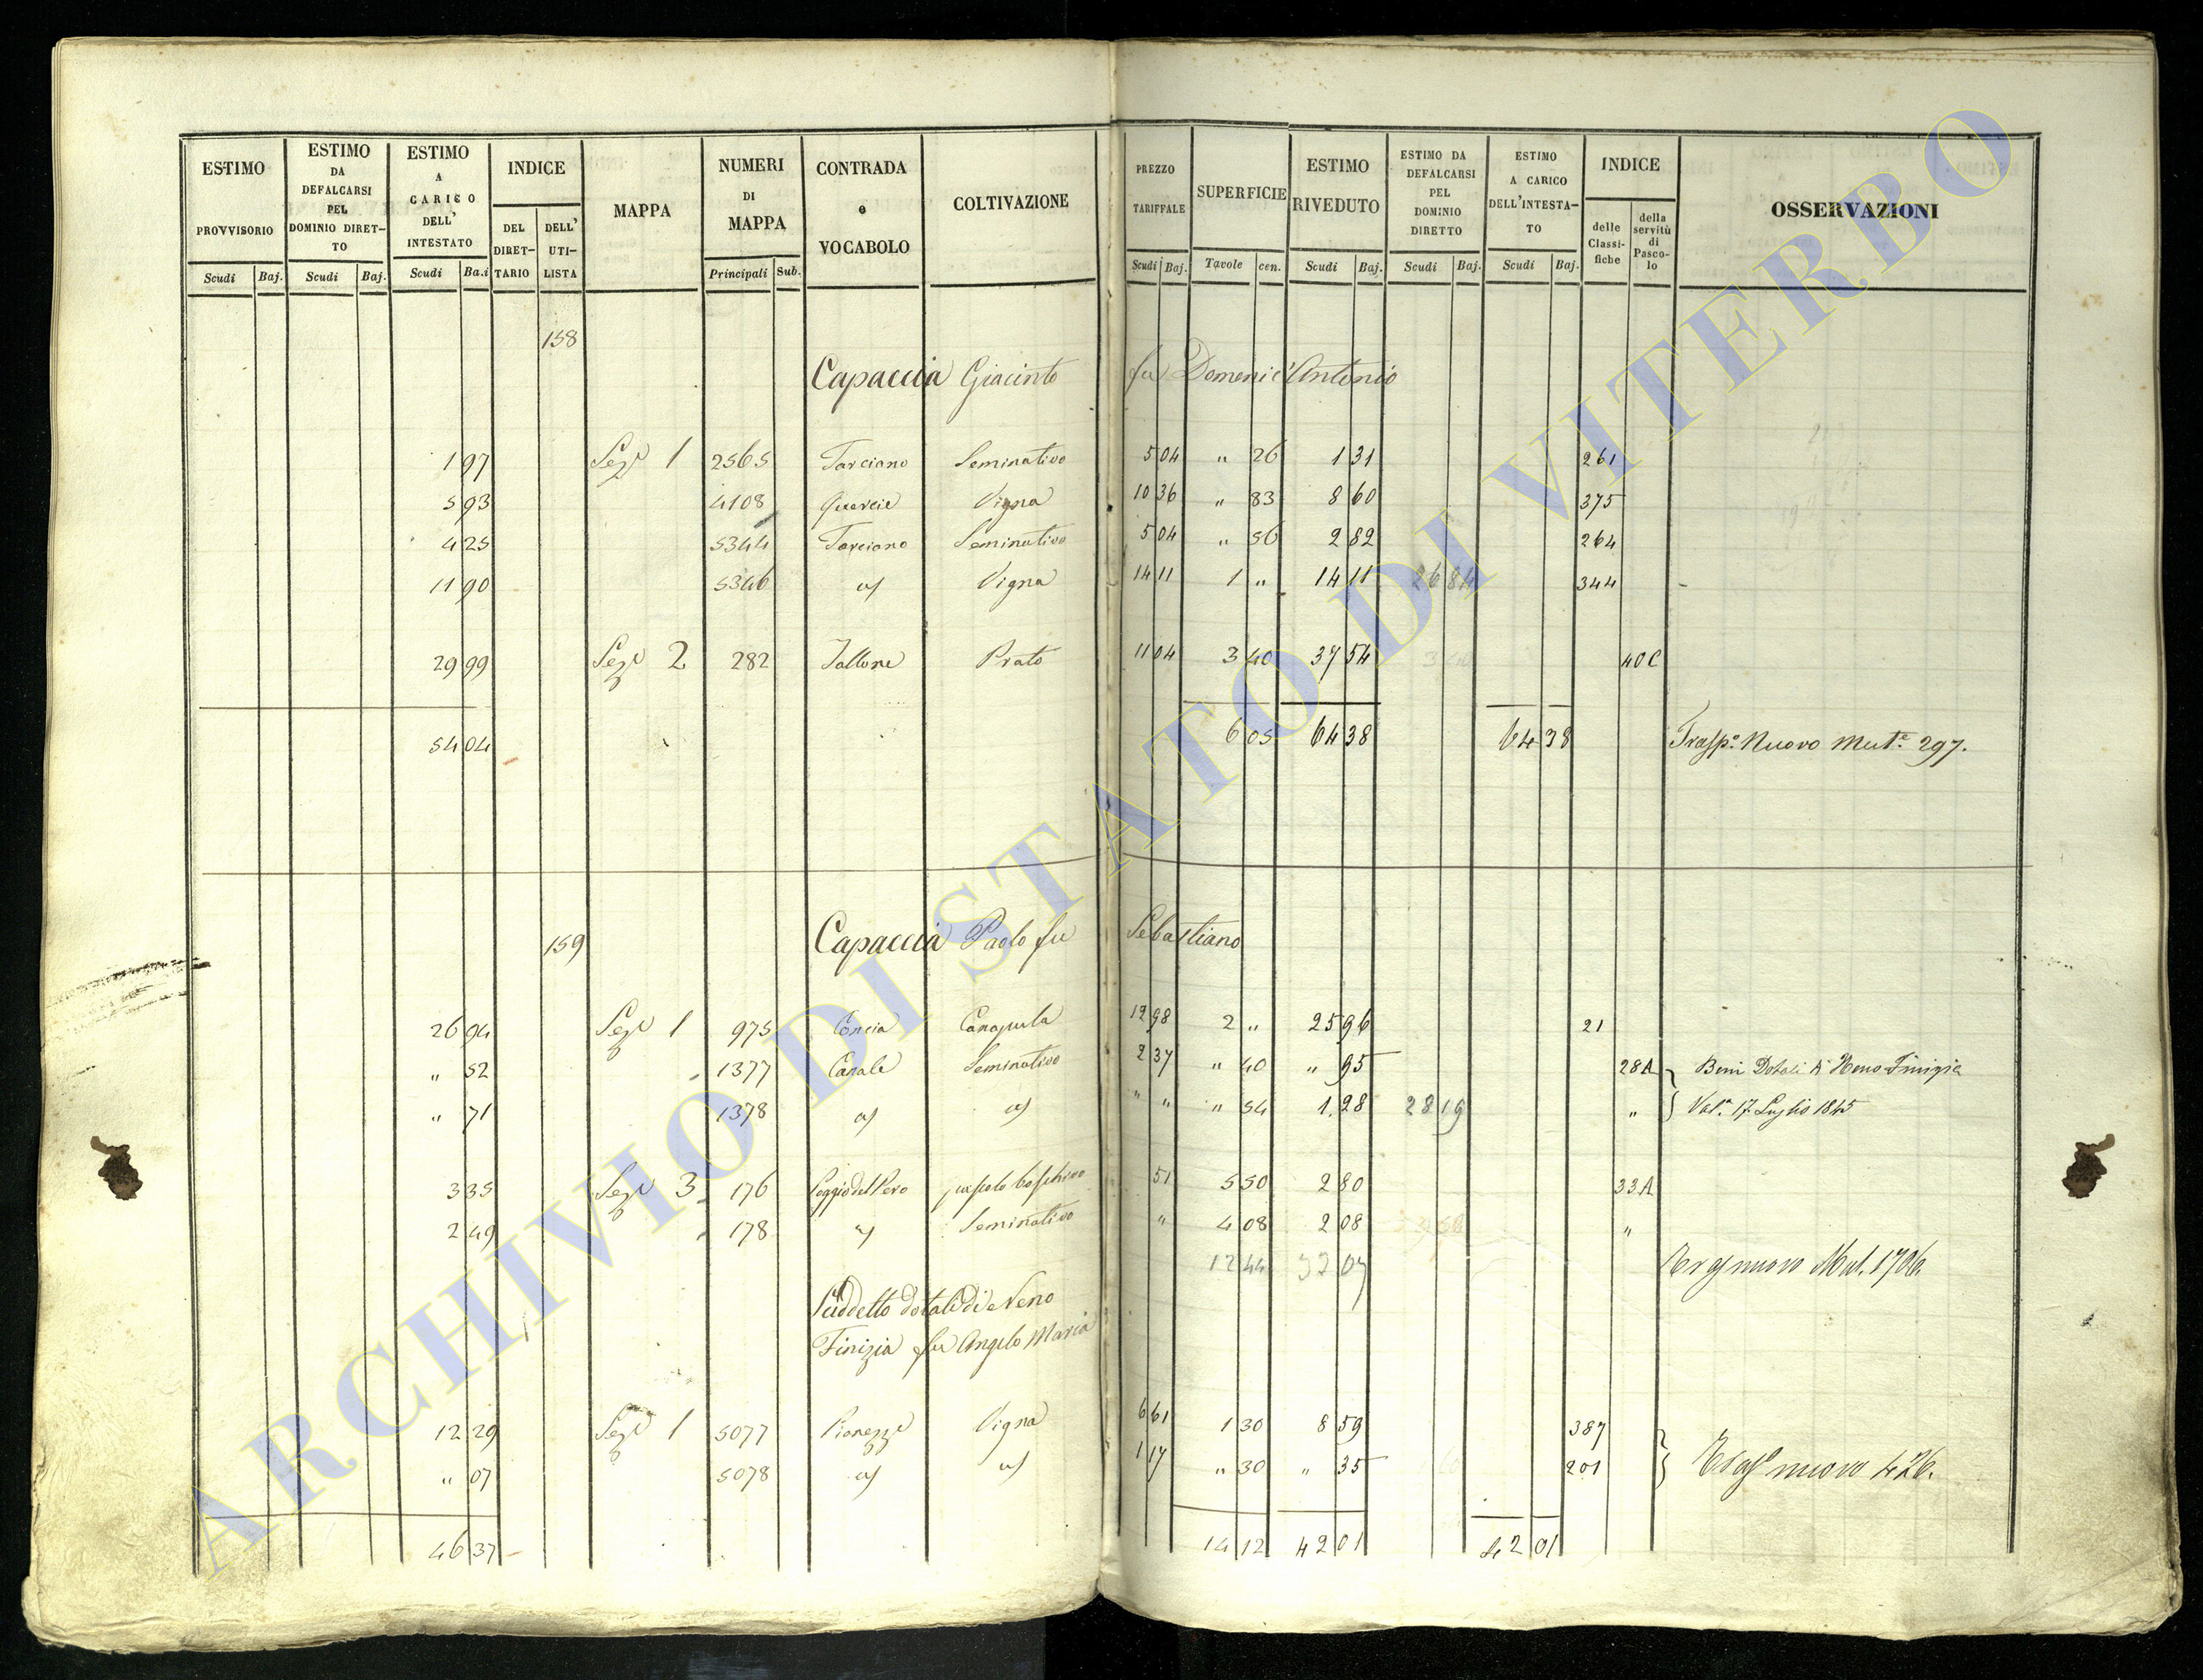 ESTIMO PROVVISORIO Scudi Baj. ESTIMO DA DEFALCARSI PEL DOMINIO DIRET-TO Scudi Baj. ESTIMO A CARICO DELL' INTESTATO Scudi Ba.i INDICE DEL DIRET-TARIO DELL' UTI-LISTA MAPPA NUMERI DI MAPPA Principali Sub. CONTRADA e VOCABOLO COLTIVAZIONE PREZZO TARIFFALE Scudi Baj. SUPERFICIE Tavole cen. ESTIMO RIVEDUTO Scudi Baj. ESTIMO DA DEFALCARSI PEL DOMINIO DIRETTO Scudi Baj. ESTIMO A CARICO DELL'INTESTA-TO Scudi Baj. INDICE delle Classi-fiche della servitù di Pasco-lo OSSERVAZIONI
158
Capaccia Giacinto fu Domenic'Antonio
1 97 Sez.e 1 2565 Tarciano Seminativo 5 04 " 26 1 31 261
5 93 4108 Quercie Vigna 10 36 " 83 8 60 375
4 25 5344 Tarciano Seminativo 5 04 " 56 2 82 264
11 90 5346 a/ Vigna 14 11 1 " 14 11 26 84 344
29 99 Sez.e 2 282 Vallone Prato 11 04 3 40 37 54 3 40 40 C
54 04 6 05 64 38 64 38 Trasp.o Nuovo Mut.e 297.
159 Capaccia Paolo fu Sebastiano
26 94 Sez.e 1 975 Concia Canapula 12 98 2 " 25 96 21
" 52 1377 Canale Seminativo 2 37 " 40 " 95 28A Beni Dotali di Neno Finizia
" 71 1378 a/ a/ " " " 54 1 28 28 19 " Vol.a 17 Luglio 1845
3 35 Sez.e 3 176 Poggio del Pero pascolo boschivo 51 5 50 2 80 33A
2 49 178 a/ Seminativo " 4 08 2 08 "
12 44 33 07 nuovo Mut. 1706.
Suddetto dotali di Neno
Finizia fu Angelo Maria
12 29 Sez.e 1 5077 Pianezze Vigna 6 61 1 30 8 59 387
" 07 5078 a/ a/ 1 17 " 30 " 35 201 nuovo 426.
46 37 14 12 42 01 42 01
ARCHIVIO DI STATO DI VITERBO